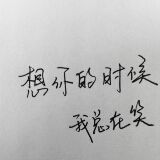 想你的时候
我总在笑